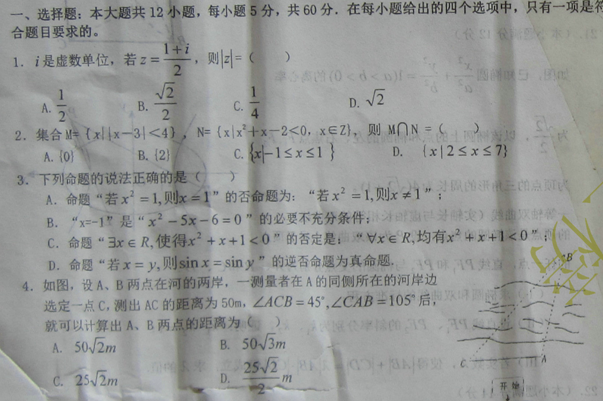 一、选择题：本大题共12小题，每小题5分，共60分．在每小题给出的四个选项中，只有一项是符
合题目要求的。
1. i是虚数单位，若z=\frac{1+i}{2}，则|z|=（ ）
A. \frac{1}{2} B. \frac{\sqrt{2}}{2} C. \frac{1}{4} D. \sqrt{2}
2. 集合M={x||x-3|<4}，N={x|x²+x-2<0，x∈Z}，则 M∩N =（ ）
A. {0} B. {2} C. {x|-1≤x≤1} D. {x|2≤x≤7}
3. 下列命题的说法正确的是（ ）
A. 命题“若x²=1,则x=1”的否命题为：“若x²=1,则x≠1”；
B. “x=-1”是“x²-5x-6=0”的必要不充分条件；
C. 命题“∃x∈R,使得x²+x+1<0”的否定是：“∀x∈R,均有x²+x+1<0”；
D. 命题“若x=y,则sinx=siny”的逆否命题为真命题.
4. 如图，设A、B两点在河的两岸，一测量者在A的同侧所在的河岸边
选定一点C,测出AC的距离为50m，∠ACB=45°,∠CAB=105°后,
就可以计算出A、B两点的距离为（ ）
A. 50\sqrt{2}m B. 50\sqrt{3}m
C. 25\sqrt{2}m D. \frac{25\sqrt{2}}{2}m
B
A
开始